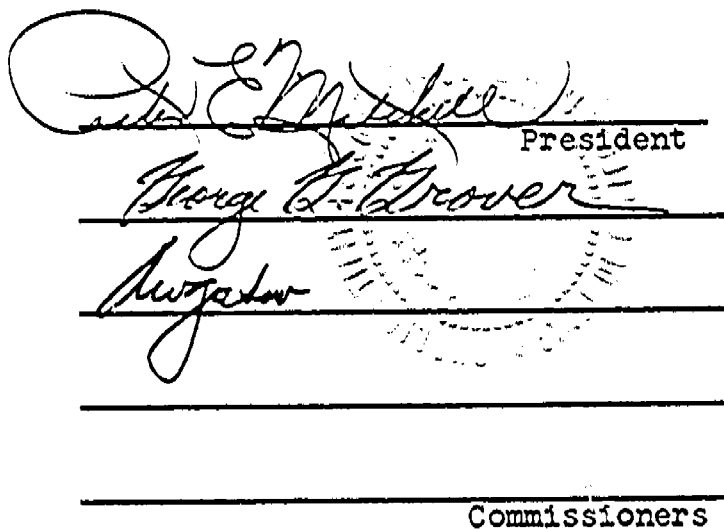 Peter E. Mitchell
President
George G. Grover
Commissioners